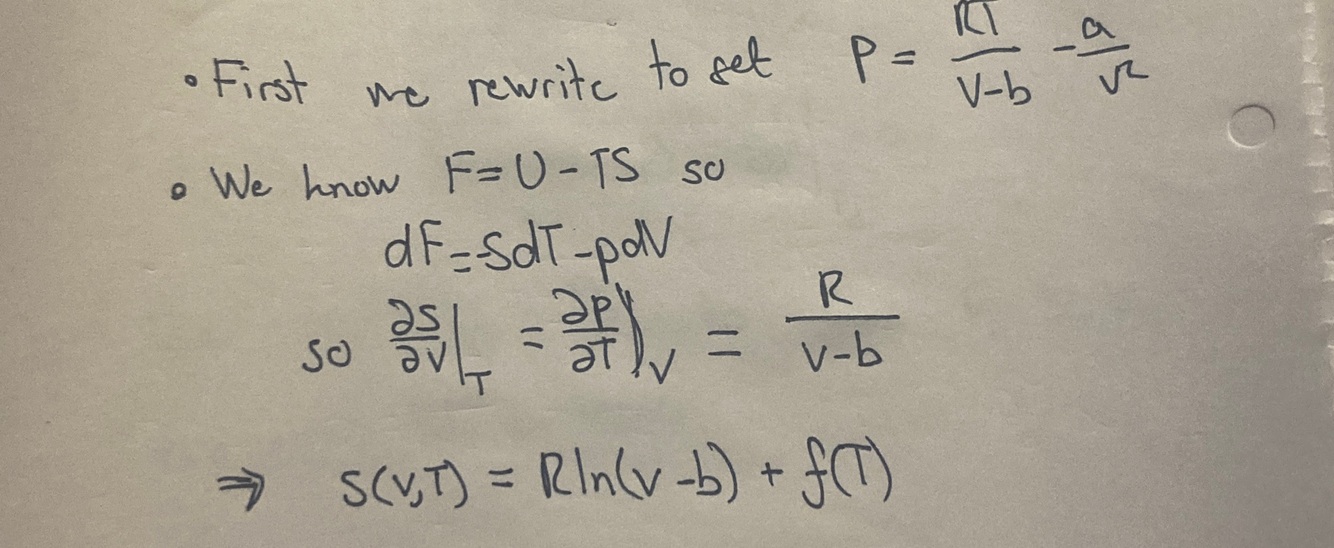 • First we rewrite to get P = RT/(V-b) - a/V²
• We know F = U - TS so
dF = -SdT - pdV
so ∂S/∂V|_T = ∂P/∂T)_V = R/(V-b)
⇒ S(V,T) = Rln(V-b) + f(T)